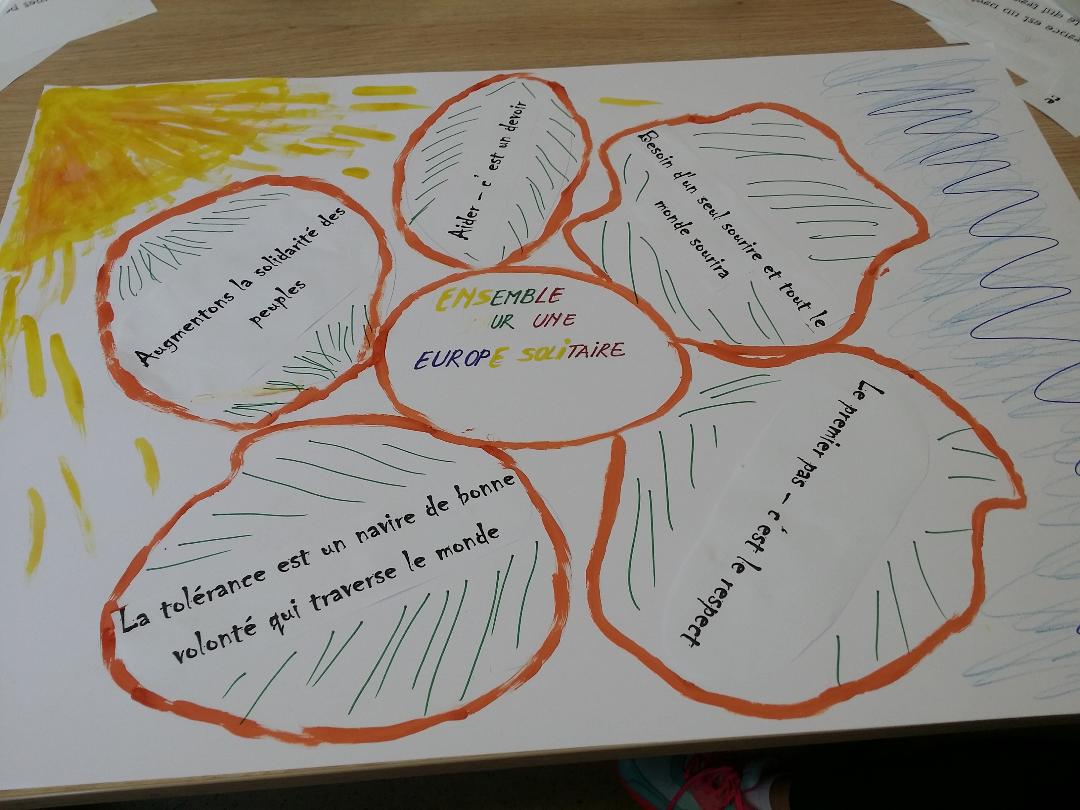 ENSEMBLE
UR UNE
EUROPE SOLITAIRE
Aider – c'est un devoir
Besoin d'un seul sourire et tout le
monde sourira
Le premier pas – c'est le respect
La tolérance est un navire de bonne
volonté qui traverse le monde
Augmentons la solidarité des
peuples